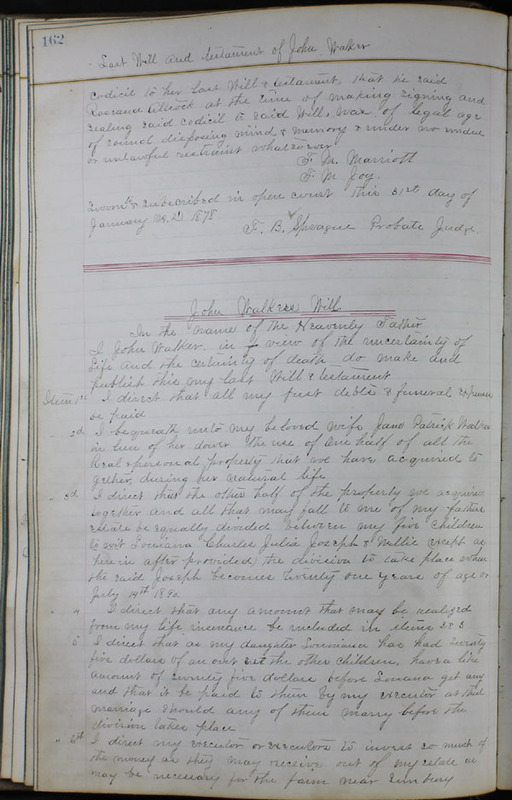 162
Last Will and testament of John Walker
codicil to her Last Will & testament, that he said
at the time of making signing and
sealing said codicil to said Will, was of legal age
of sound disposing mind & memory & under no undue
or unlawful restraint whatsoever
F. M. Marriott
F. M. Joy.
Sworn to & subscribed in open court this 31st day of
January A.D. 1878
F. B. Sprague Probate Judge.
John Walkers Will
In the name of the Heavenly Father
I John Walker, in view of the uncertainty of
Life and the certainty of death do make and
publish this my last Will & testament
Item 1st I direct that all my just debts & funeral expenses
be paid
" 2d I bequeath unto my beloved wife Jane Patrick Walker
in lieu of her dower the use of one half of all the
real & personal property that we have acquired to
gether, during her natural life
" 3d I direct that the other half of the property we acquired
together and all that may fall to me of my fathers
estate be equally divided between my five children
to wit Louisiana Charles Julia Joseph & Nellie except as
herein after provided, the division to take place when
the said Joseph becomes twenty one years of age or
July 14th 1890
" 4 I direct that any amount that may be realized
from my life insurance be included in items 2 & 3
" 5 I direct that as my daughter Louisiana has had twenty
five dollars of an over the other children, have a like
amount of twenty five dollars before get any
and that it be paid to them by my executor at their
marriage should any of them marry before the
division takes place
" 6th I direct my executor or executors to invest so much of
the money as they may receive out of my estate as
may be necessary for the farm near Sunbury